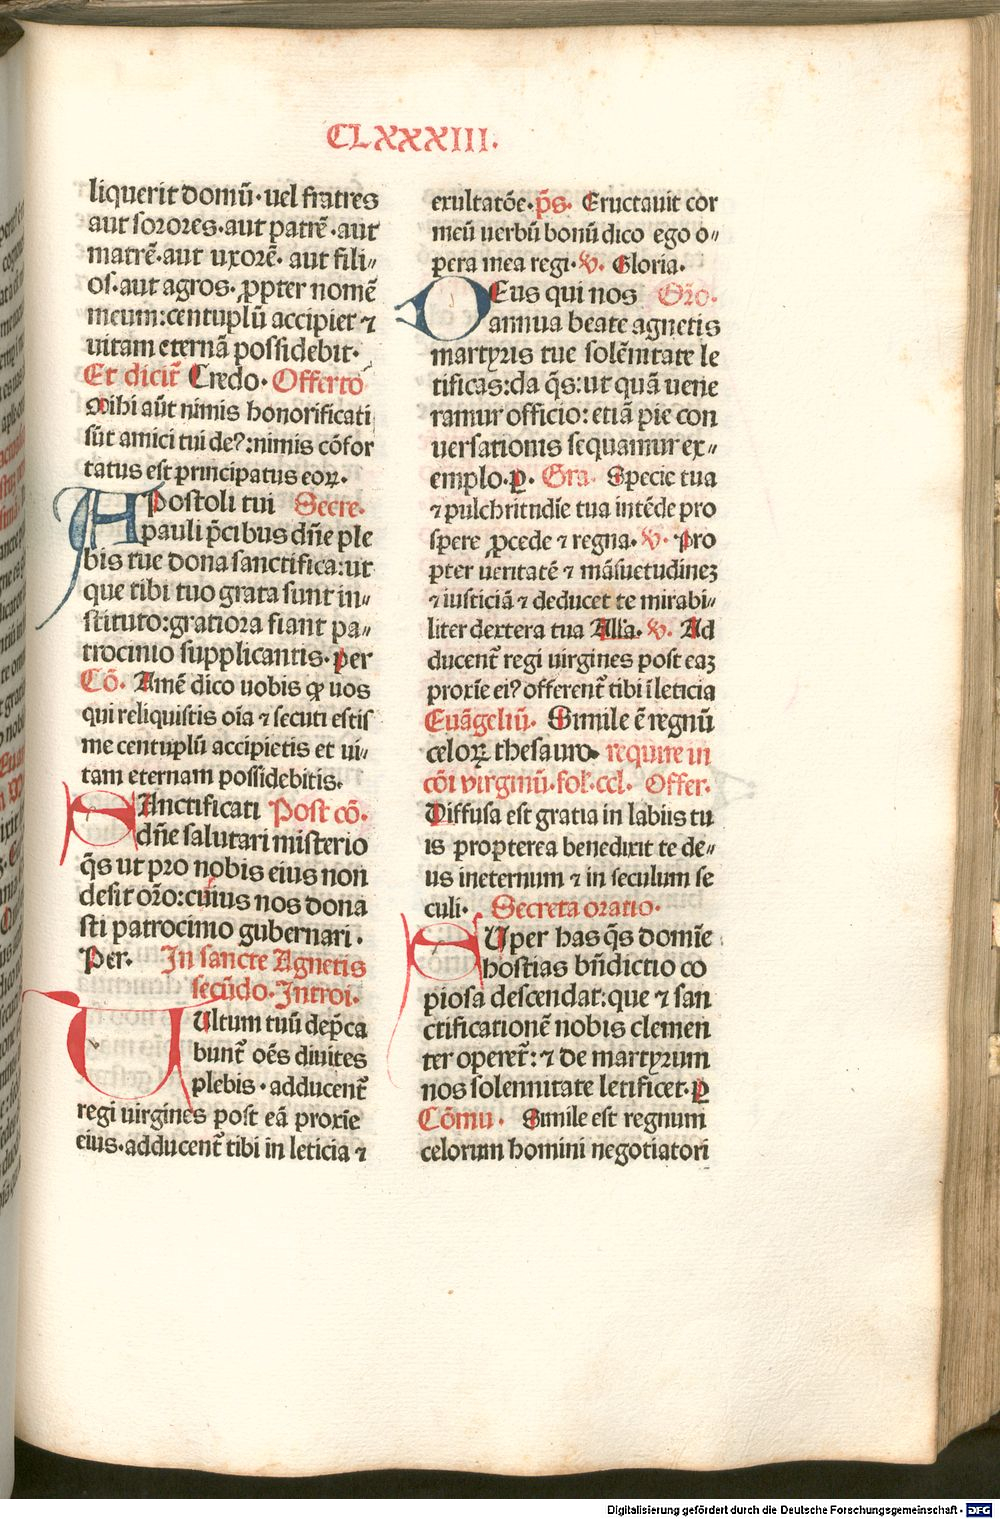 CLXXXIII.
liquerit domū·uel fratres
aut sorores·aut patrē·aut
matrē·aut uxorē· aut fili⸗
os·aut agros· ꝓpter nomē
meum:centuplū accipiet ⁊
uitam eternā possidebit·
Et dicit᷑ Credo· Offerto
Mihi aūt nimis honorificati
sūt amici tui de?:nimis cōfor
tatus est principatus eoꝝ·
APostoli tui Secre·
pauli p̄cibus dn̄e ple
bis tue dona sanctifica:ut
que tibi tuo grata sunt in⸗
stituto:gratiora fiant pa⸗
trocinio supplicantis· per
Cō· Amē dico uobis ꝙ uos
qui reliquistis oīa ⁊ secuti estis
me centuplū accipietis et ui⸗
tam eternam possidebitis·
SAnctificati Post cō·
dn̄e salutari misterio
q̄s ut pro nobis eius non
desit or̄o:cuius nos dona
sti patrocimo gubernari·
Per· In sancte Agnetis
secūdo·Introi·
VUltum tuū dep̄ca
bunt᷑ oēs diuites
plebis·adducent᷑
regi uirgines post eā proxīe
eius·adducent᷑ tibi in leticia ⁊
exultatōe·p̄s· Eructauit cor
meū uerbū bonū dico ego o⸗
pera mea regi·V. Gloria·
DEus qui nos Or̄o·
annua beate agnetis
martyris tue solēnitate le
tificas:da q̄s:ut quā uene
ramur officio:etiā pie con
uersationis sequamur ex⸗
emplo·ꝑ· Gra· Specie tua
⁊ pulchritudīe tua intēde pro
spere ꝓcede ⁊ regna·V· Pro
pter ueritatē ⁊ māsuetudineꝫ
⁊ iusticiā ⁊ deducet te mirabi⸗
liter dextera tua All'a·V· Ad
ducent᷑ regi uirgines post eaꝫ
proxīe ei? offerent᷑ tibi ī leticia
Euāgeliū· Simile ē regnū
celoꝝ thesauro· require in
cōi virginū·fol·ccl· Offer·
Diffusa est gratia in labiis tu
is propterea benedixit te de⸗
us ineternum ⁊ in seculum se
culi· Secreta oratio·
SUper has q̄s domīe
hostias bn̄dictio co
piosa descendat:que ⁊ san
ctificationē nobis clemen
ter operet᷑:⁊ de martyrum
nos solennitate letificet·ꝑ
Cōmu· Simile est regnum
celorum homini negotiatori
Digitalisierung gefördert durch die Deutsche Forschungsgemeinschaft - DFG